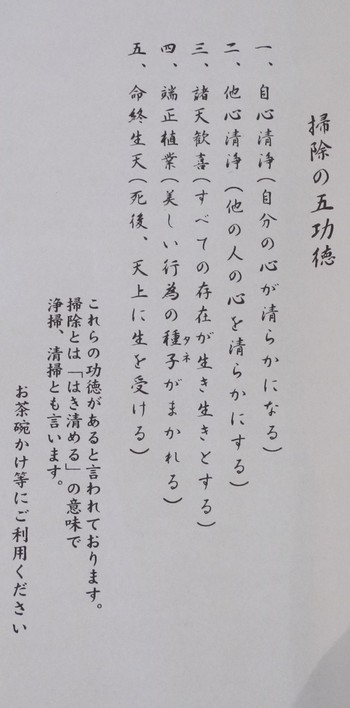 掃除の五功徳
一、自心清浄(自分の心が清らかになる)
二、他心清浄(他の人の心を清らかにする)
三、諸天歓喜(すべての存在が生き生きとする)
四、端正植業(美しい行為の種子がまかれる)
タネ
五、命終生天(死後、天上に生を受ける)
これらの功徳があると言われております。
掃除とは「はき清める」の意味で
浄掃、清掃とも言います。
お茶碗かけ等にご利用ください